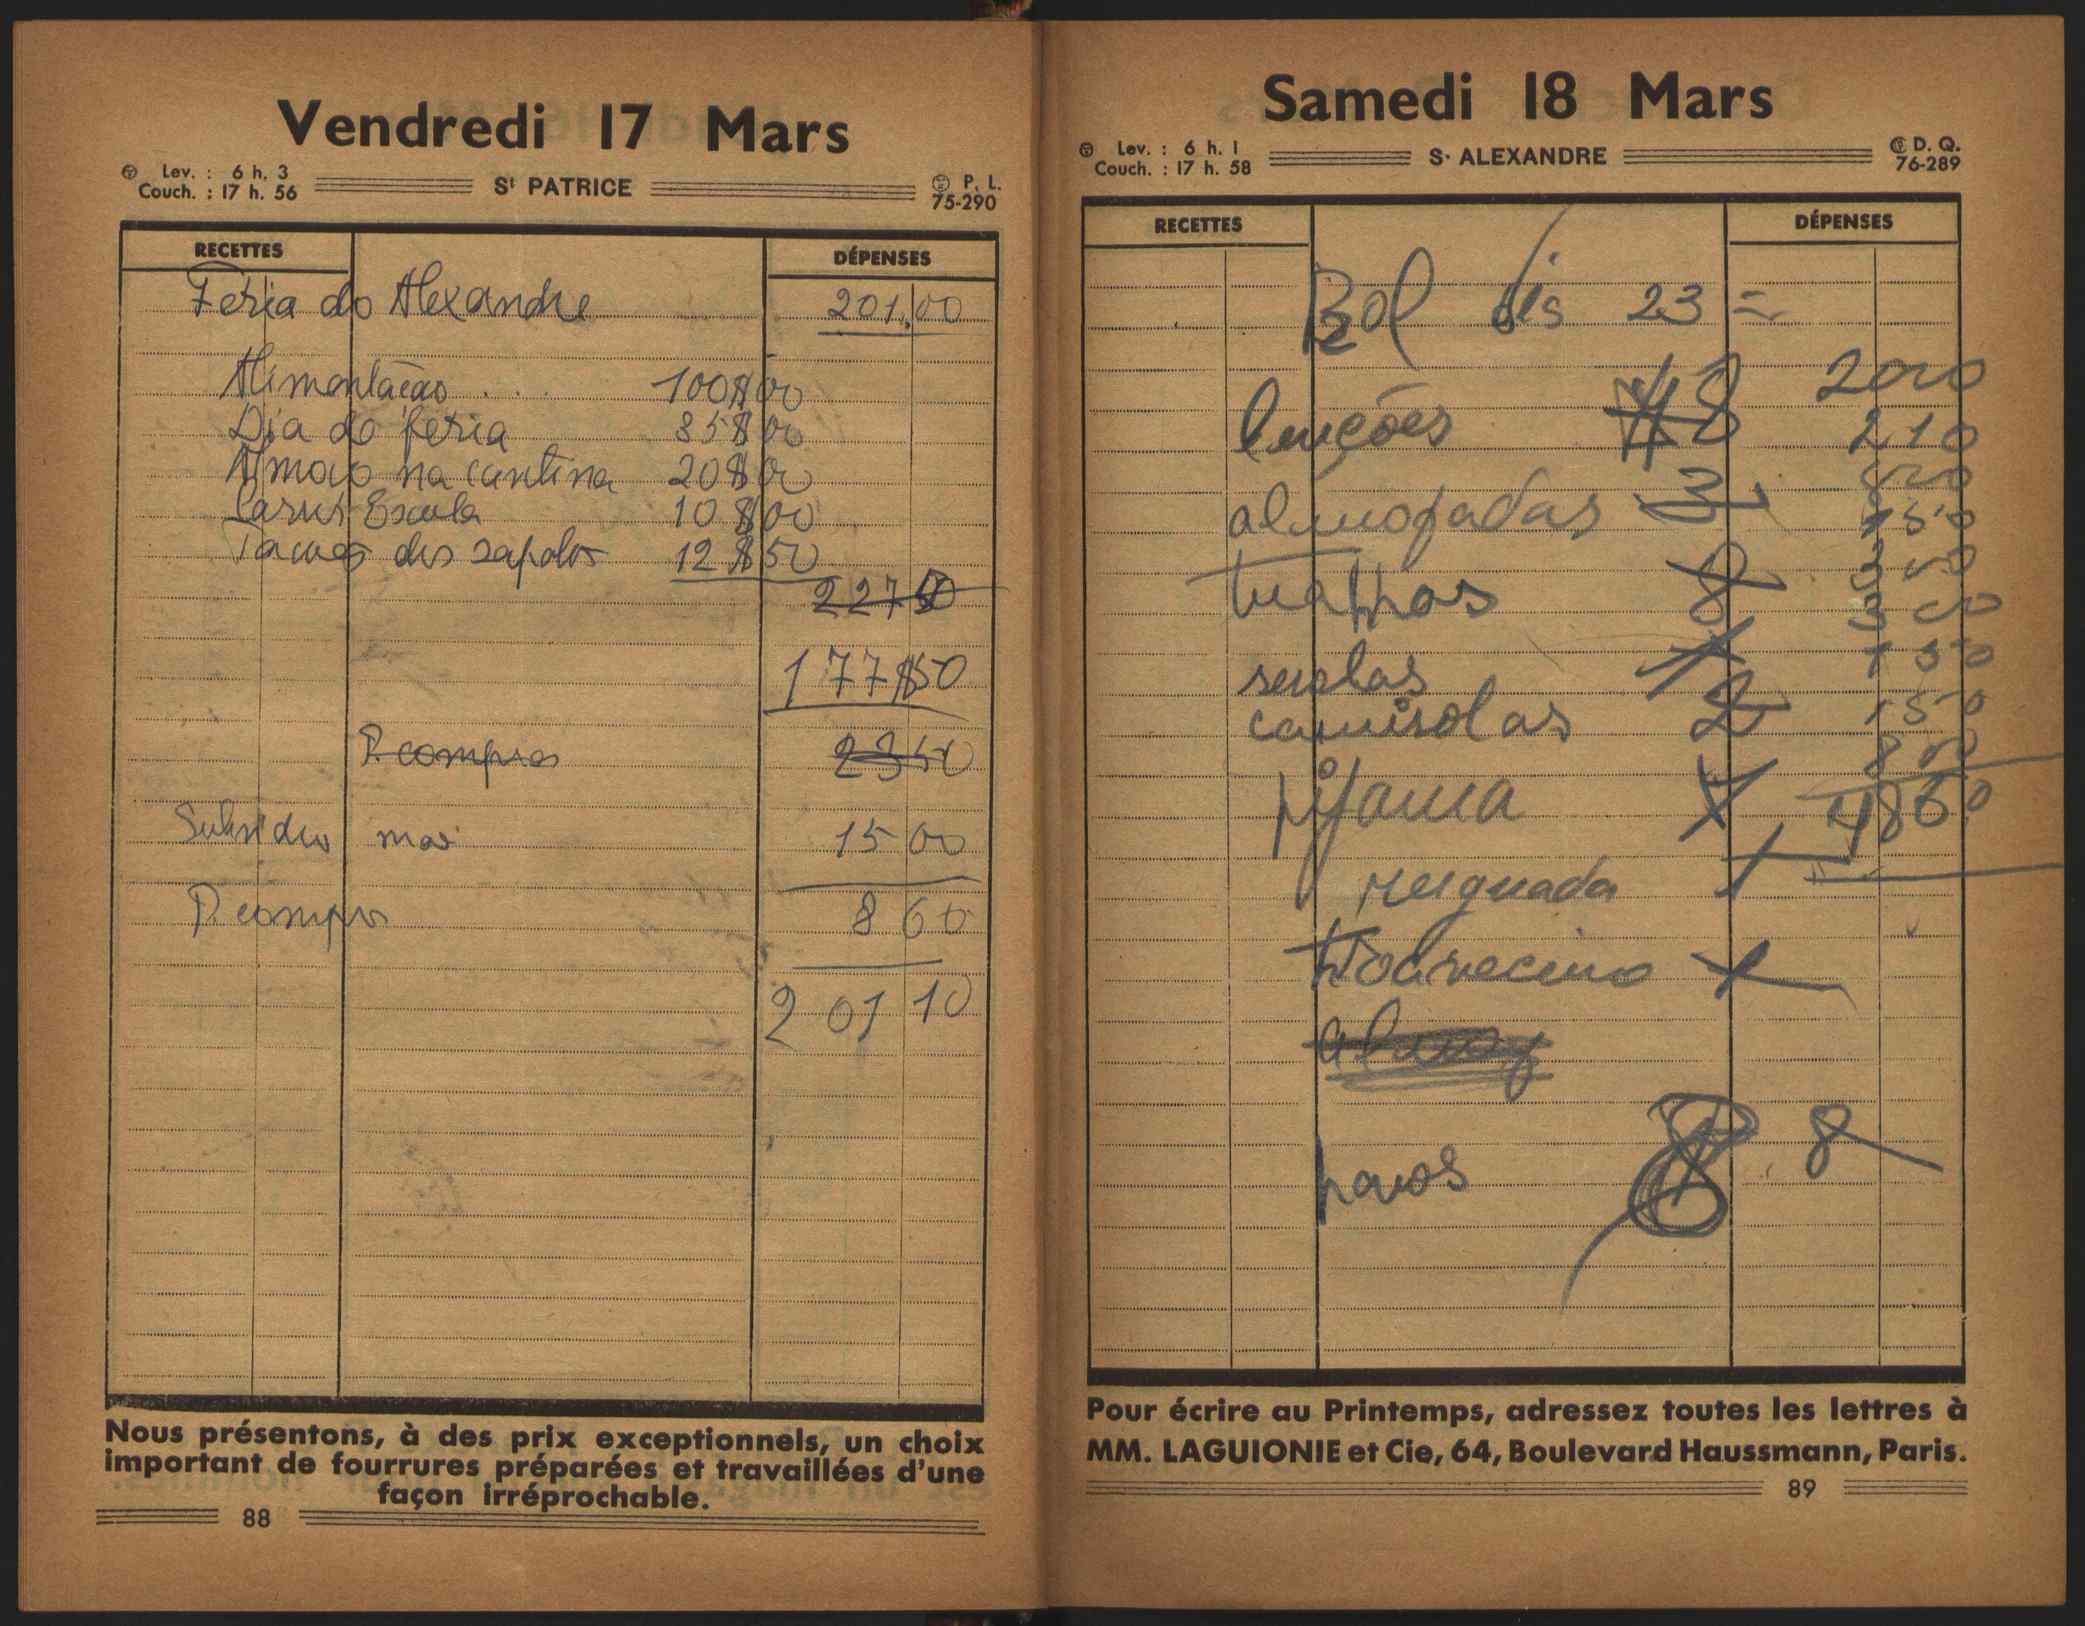 Vendredi 17 Mars
Lev. : 6 h. 3
Couch. : 17 h. 56
St PATRICE
P. L.
75-290
RECETTES
DÉPENSES
Feria do Alexandre 201.00
Alimentação . . . 100$00
Dia do feria 85$00
Almoço na cantina 20$00
Escola 10$00
dos sapatos 12$50
227 50
177$50
P. compras 23 50
Subsidio 15 00
P. compra 8 60
201 10
Nous présentons, à des prix exceptionnels, un choix
important de fourrures préparées et travaillées d'une
façon irréprochable.
88
Samedi 18 Mars
Lev. : 6 h. 1
Couch. : 17 h. 58
S. ALEXANDRE
D. Q.
76-289
RECETTES
DÉPENSES
Rol dis 23 =
200
lençóes 8 210
almofadas 3 150
8 300
senolas 1 150
camisolas 2 150
800
pijama 1 4860
resguada 1
1
panos 8 8
Pour écrire au Printemps, adressez toutes les lettres à
MM. LAGUIONIE et Cie, 64, Boulevard Haussmann, Paris.
89